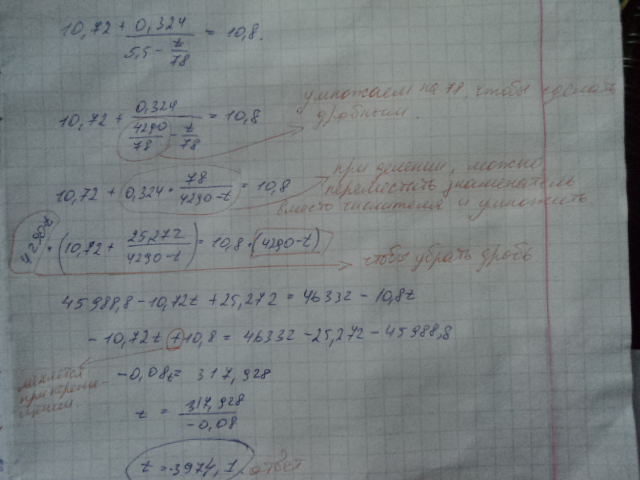 10,72 + 0,324 / (5,5 - t/78) = 10,8.
умножаем на 78, чтобы сделать
дробным.
10,72 + 0,324 / (4290/78 - t/78) = 10,8
при делении, можно
переместить знаменатель
вместо числителя и умножить
10,72 + 0,324 * 78/(4290-t) = 10,8
(10,72 + 25,272/(4290-t)) = 10,8 * (4290-t)
чтобы убрать дробь.
45988,8 - 10,72t + 25,272 = 46332 - 10,8t
- 10,72t + 10,8 = 46332 - 25,272 - 45988,8
меняется
при
-0,08t = 317,928
t = 317,928 / -0,08
t = 3974,1. ответ